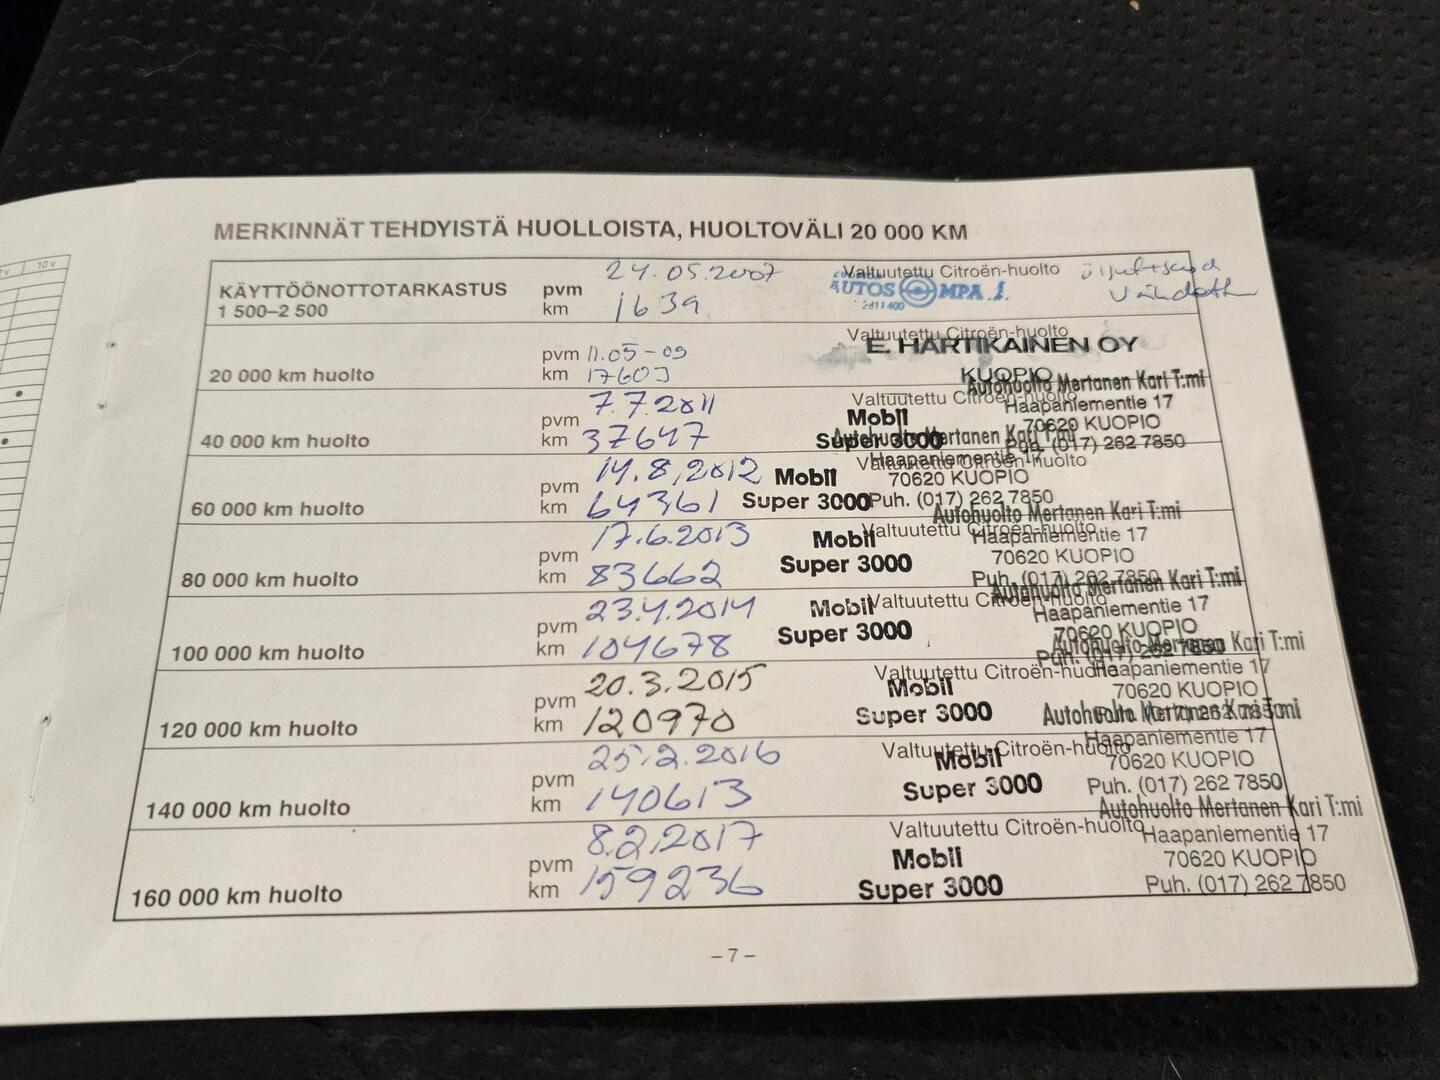 10 v
MERKINNÄT TEHDYISTÄ HUOLLOISTA, HUOLTOVÄLI 20 000 KM
KÄYTTÖÖNOTTOTARKASTUS
1 500–2 500
pvm 24.05.2007
km 1639
Valtuutettu Citroën-huolto
20 000 km huolto
pvm 11.05-09
km 17603
Valtuutettu Citroën-huolto
E. HARTIKAINEN OY
KUOPIO
40 000 km huolto
pvm 7.7.2011
km 37647
Valtuutettu Citroën-huolto
Mobil
Super 3000
Autohuolto Mertanen Kari T:mi
Haapaniementie 17
70620 KUOPIO
Puh. (017) 262 7850
60 000 km huolto
pvm 14.8.2012
km 64361
Valtuutettu Citroën-huolto
Mobil
Super 3000
Autohuolto Mertanen Kari T:mi
Haapaniementie 17
70620 KUOPIO
Puh. (017) 262 7850
80 000 km huolto
pvm 17.6.2013
km 83662
Valtuutettu Citroën-huolto
Mobil
Super 3000
Autohuolto Mertanen Kari T:mi
Haapaniementie 17
70620 KUOPIO
Puh. (017) 262 7850
100 000 km huolto
pvm 23.4.2014
km 104678
Valtuutettu Citroën-huolto
Mobil
Super 3000
Autohuolto Mertanen Kari T:mi
Haapaniementie 17
70620 KUOPIO
Puh. (017) 262 7850
120 000 km huolto
pvm 20.3.2015
km 120970
Valtuutettu Citroën-huolto
Mobil
Super 3000
Autohuolto Mertanen Kari T:mi
Haapaniementie 17
70620 KUOPIO
Puh. (017) 262 7850
140 000 km huolto
pvm 25.2.2016
km 140613
Valtuutettu Citroën-huolto
Mobil
Super 3000
Autohuolto Mertanen Kari T:mi
Haapaniementie 17
70620 KUOPIO
Puh. (017) 262 7850
160 000 km huolto
pvm 8.2.2017
km 159236
Valtuutettu Citroën-huolto
Mobil
Super 3000
Autohuolto Mertanen Kari T:mi
Haapaniementie 17
70620 KUOPIO
Puh. (017) 262 7850
– 7 –